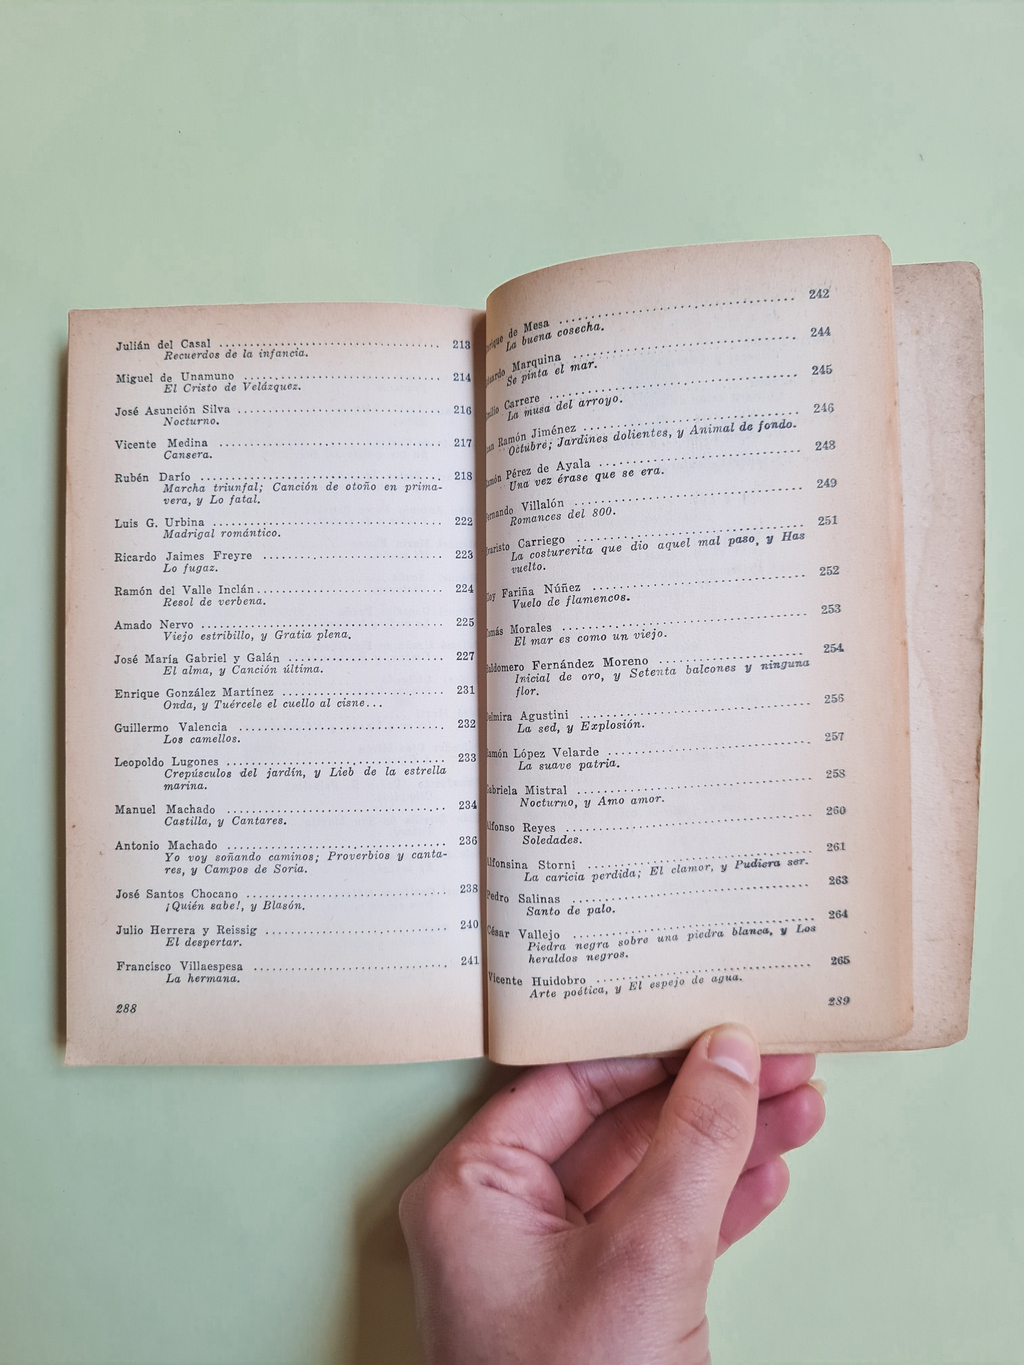 Julián del Casal ........................................ 213
Recuerdos de la infancia.
Miguel de Unamuno ................................... 214
El Cristo de Velázquez.
José Asunción Silva ................................... 216
Nocturno.
Vicente Medina ...................................... 217
Cansera.
Rubén Darío ........................................ 218
Marcha triunfal; Canción de otoño en prima-
vera, y Lo fatal.
Luis G. Urbina ...................................... 222
Madrigal romántico.
Ricardo Jaimes Freyre ............................... 223
Lo fugaz.
Ramón del Valle Inclán................................ 224
Resol de verbena.
Amado Nervo ........................................ 225
Viejo estribillo, y Gratia plena.
José María Gabriel y Galán ........................... 227
El alma, y Canción última.
Enrique González Martínez ........................... 231
Onda, y Tuércele el cuello al cisne...
Guillermo Valencia .................................. 232
Los camellos.
Leopoldo Lugones .................................... 233
Crepúsculos del jardín, y Lieb de la estrella
marina.
Manuel Machado .................................... 234
Castilla, y Cantares.
Antonio Machado .................................... 236
Yo voy soñando caminos; Proverbios y canta-
res, y Campos de Soria.
José Santos Chocano ................................. 238
¡Quién sabe!, y Blasón.
Julio Herrera y Reissig .............................. 240
El despertar.
Francisco Villaespesa ................................ 241
La hermana.
288
nrique de Mesa ...................................... 242
La buena cosecha.
duardo Marquina .................................... 244
Se pinta el mar.
milio Carrere ........................................ 245
La musa del arroyo.
uan Ramón Jiménez .................................. 246
Octubre; Jardines dolientes, y Animal de fondo.
amón Pérez de Ayala ................................. 248
Una vez érase que se era.
ernando Villalón ..................................... 249
Romances del 800.
varisto Carriego ..................................... 251
La costurerita que dio aquel mal paso, y Has
vuelto.
loy Fariña Núñez .................................... 252
Vuelo de flamencos.
omás Morales ....................................... 253
El mar es como un viejo.
aldomero Fernández Moreno ......................... 254
Inicial de oro, y Setenta balcones y ninguna
flor.
elmira Agustini ..................................... 256
La sed, y Explosión.
amón López Velarde ................................. 257
La suave patria.
abriela Mistral ...................................... 258
Nocturno, y Amo amor.
lfonso Reyes ........................................ 260
Soledades.
lfonsina Storni ...................................... 261
La caricia perdida; El clamor, y Pudiera ser.
Pedro Salinas ....................................... 263
Santo de palo.
César Vallejo ....................................... 264
Piedra negra sobre una piedra blanca, y Los
heraldos negros.
Vicente Huidobro .................................... 265
Arte poética, y El espejo de agua.
289